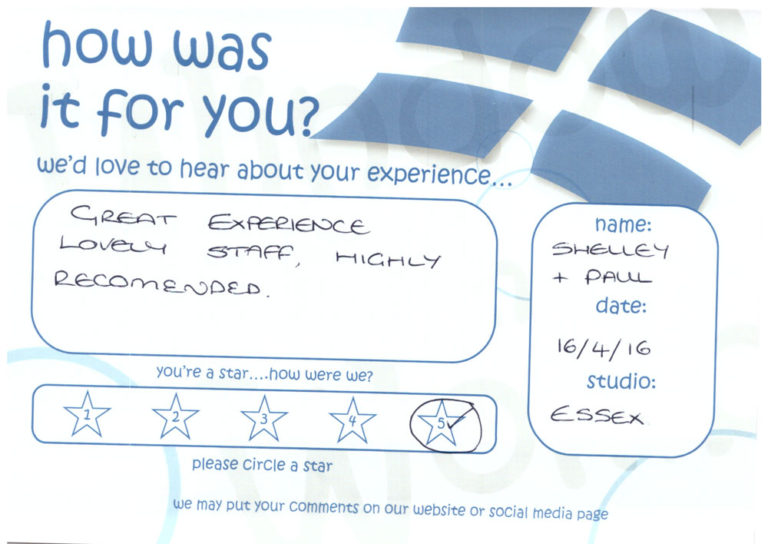 how was
it for you?
we'd love to hear about your experience...
GREAT EXPERIENCE
LOVELY STAFF, HIGHLY
RECOMENDED.
name:
SHELLEY
+ PAUL
date:
16/4/16
studio:
ESSEX
you're a star....how were we?
1 2 3 4 5
please circle a star
we may put your comments on our website or social media page